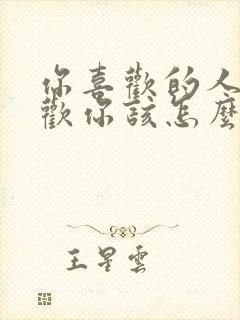 你喜歡的人
歡你該怎麼
王星雲